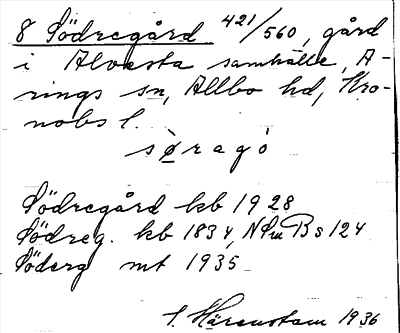 8 Södregård 421/560, gård
i Alvesta samhälle, A-
rings sn, Allbo hd, Kro-
nobs l.
sø̀ragó
Södregård kb 1928
Södreg. kb 1834, Bs 124
Söderg mt 1935
S. Härenstam 1936